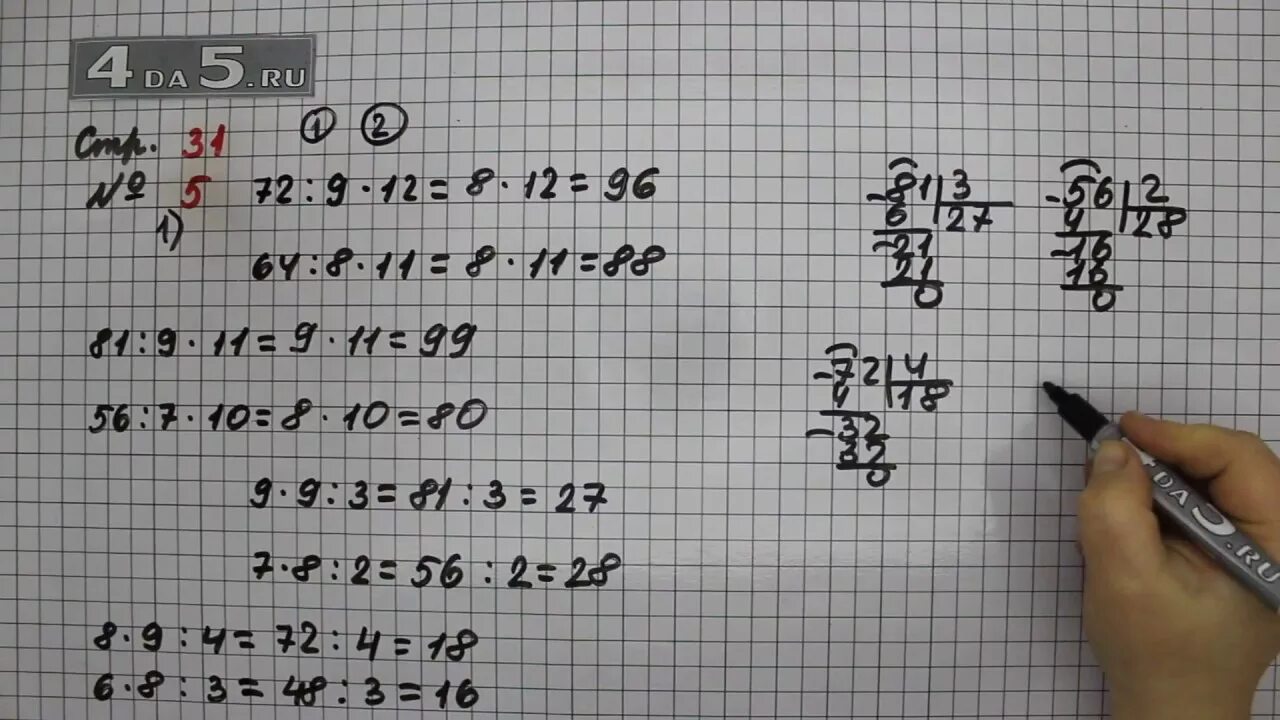 4DA5.RU
Стр. 31 ① ②
№ 5 72:9·12=8·12=96
1)
64:8·11=8·11=88
81:9·11=9·11=99
56:7·10=8·10=80
9·9:3=81:3=27
7·8:2=56:2=28
8·9:4=72:4=18
6·8:3=48:3=16
-81|3
6 |27
-21
21
0
-56|2
4 |28
-16
16
0
-72|4
4 |18
-32
32
0
4DA5.RU